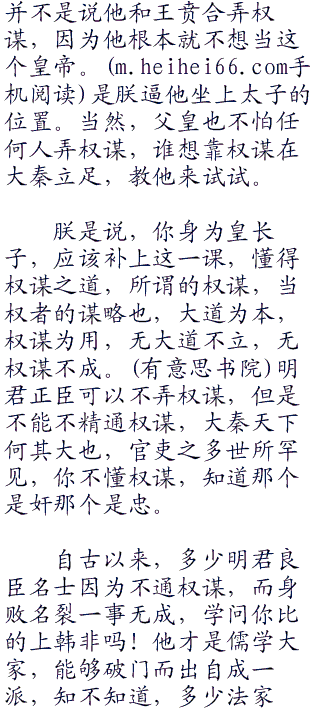 并不是说他和王贲合弄权
谋，因为他根本就不想当这
个皇帝。(m.heihei66.com手
机阅读)是朕逼他坐上太子的
位置。当然，父皇也不怕任
何人弄权谋，谁想靠权谋在
大秦立足，教他来试试。
朕是说，你身为皇长
子，应该补上这一课，懂得
权谋之道，所谓的权谋，当
权者的谋略也，大道为本，
权谋为用，无大道不立，无
权谋不成。(有意思书院)明
君正臣可以不弄权谋，但是
不能不精通权谋，大秦天下
何其大也，官吏之多世所罕
见，你不懂权谋，知道那个
是奸那个是忠。
自古以来，多少明君良
臣名士因为不通权谋，而身
败名裂一事无成，学问你比
的上韩非吗！他才是儒学大
家，能够破门而出自成一
派，知不知道，多少法家